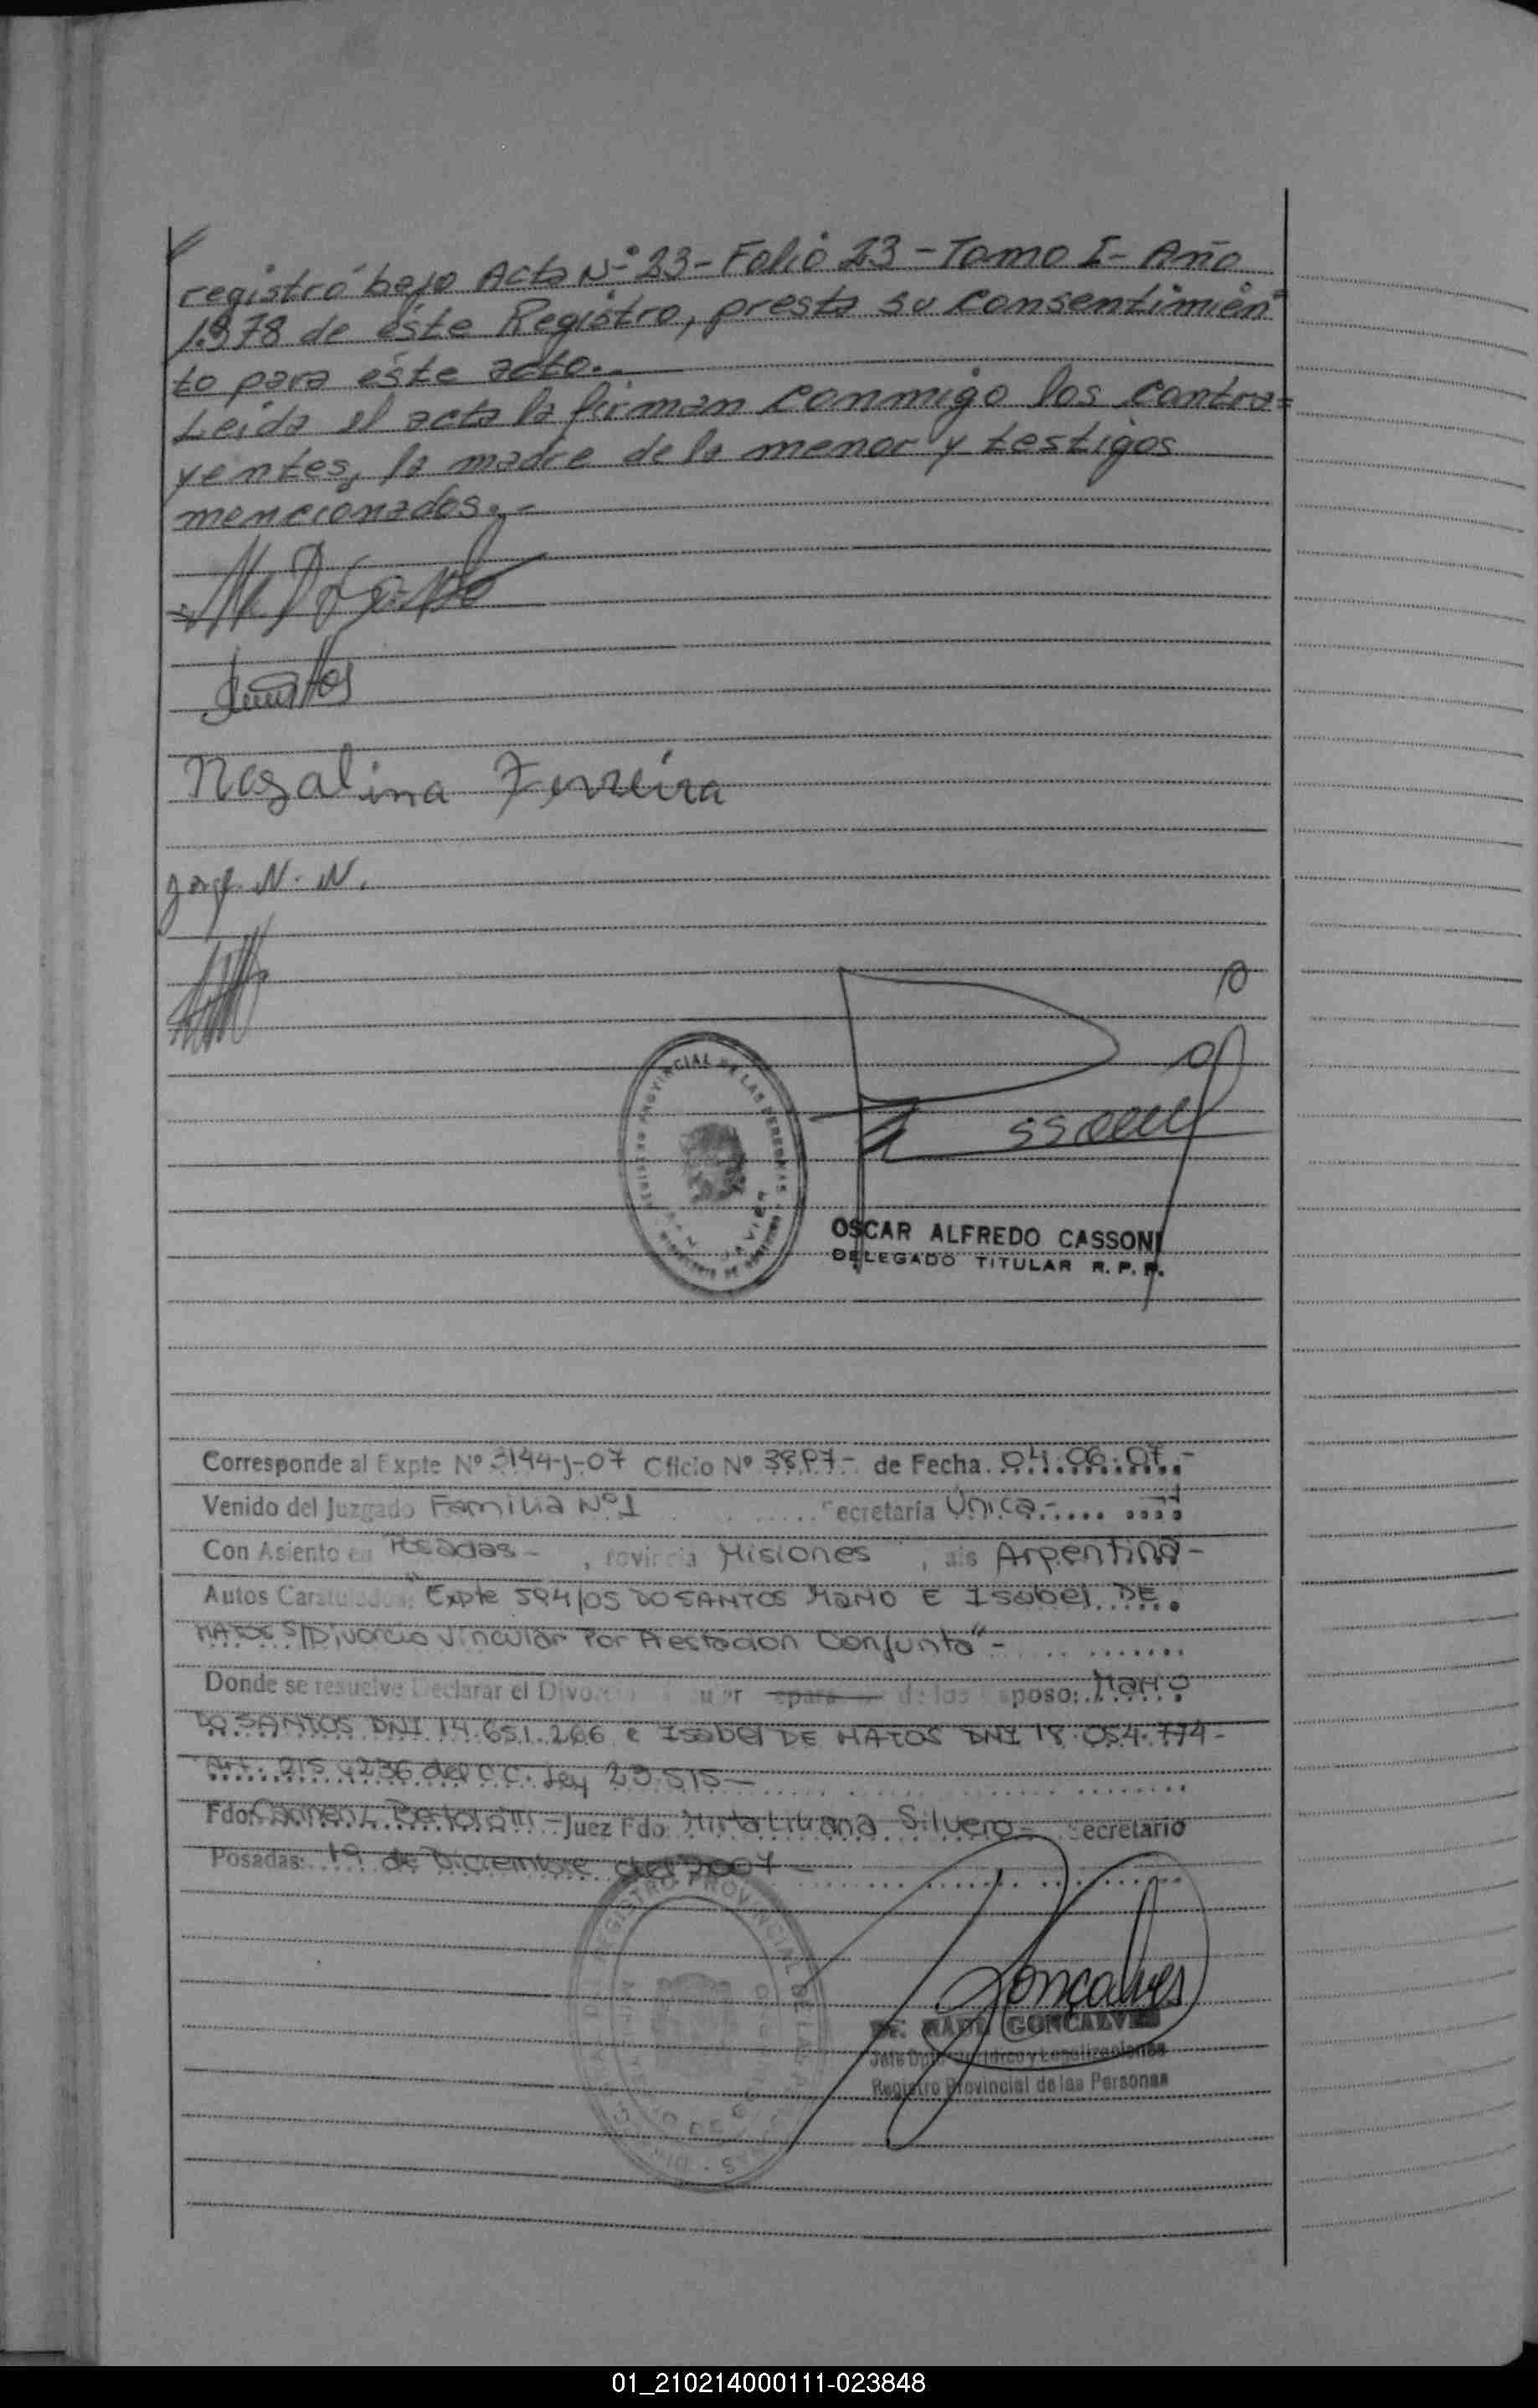 registró bajo Acta Nº 23 - Folio 23 - Tomo I - Año
1.978 de éste Registro, presta su consentimien
to para éste acto.-
Leída el acta la firman conmigo los contra=
yentes, la madre de la menor y testigos
mencionados.-
Rosalina Ferreira
N. N.
OSCAR ALFREDO CASSONI
DELEGADO TITULAR R. P. P.
Corresponde al Expte Nº 3144-J-07 Oficio Nº de Fecha 04.06.07.-
Venido del Juzgado Familia Nº1 Secretaría Única.-
Con Asiento en Posadas - , Provincia Misiones , País Argentina -
Autos Caratulados: "Expte 594/05 DO SANTOS Mario E Isabel DE
MATOS S/Divorcio Vincular Por Presetación Conjunta" -
Donde se resuelve Declarar el Divorcio de los Esposo: Mario
DO SANTOS DNI 14.651.266 e Isabel DE MATOS DNI 18.054.774 -
Art. 215 y 236 del C.C. Ley 23.515 -
Fdo: Carmen - Juez Fdo: Mirta Liliana Silvero - Secretario
Posadas: 19 de Diciembre del 2007 -
Goncalves
Dr. RAUL GONCALVES
Jefe Dpto Jurídico y Legalizaciones
Registro Provincial de las Personas
01_210214000111-023848